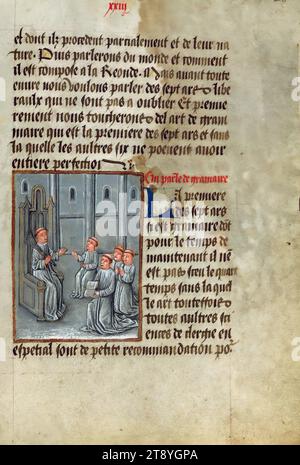 xxiii
et dont ilz procedent parcialement et de leur na
ture. Puis parlerons du monde et comment
il est compose a la Reonde. Mais avant toute
euvre nous voulons parler des sept ars libe
raulx qui ne sont pas a oublier Et premie
rement nous toucherons del art de gram
maire qui est la premiere des sept ars et sans
la quelle les aultres six ne peuent avoir
entiere perfection
Cy parle de gramaire
La premiere
des sept ars
si est gramaire dõt
pour le temps de
maintenant il nen
est pas sceu le quart
temps sans la quel
le art touteffois
toutes aultres sci
ences de clergie en
especial sont de petite recommandation po
alamy
Image ID: 2T8YGPA
www.alamy.com